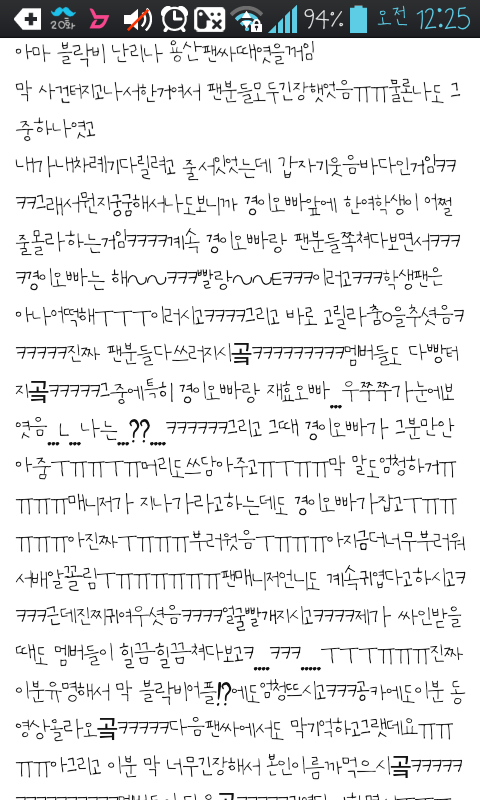 20화 94% 오전 12:25
아마 블락비 난리나 용산팬싸때였을꺼임
막 사건터지고나서한거여서 팬분들모두긴장했었음ㅠㅠ물론나도 그
중하나였고
내가내차례기다릴려고 줄서있었는데 갑자기웃음바다인거임ㅋㅋ
ㅋㅋ그래서뭔지궁금해서나도보니까 경이오빠앞에 한여학생이 어쩔
줄몰라하는거임ㅋㅋㅋㅋ계속 경이오빠랑 팬분들쪽쳐다보면서ㅋㅋㅋ
ㅋ경이오빠는 해~~ㅋㅋㅋ빨랑~~Eㅋㅋㅋ이러고ㅋㅋㅋ학생팬은
아나어떡해ㅜㅜㅜ이러시고ㅋㅋㅋㅋ그리고 바로 고릴라춤o을추셧음ㅋ
ㅋㅋㅋㅋㅋ진짜 팬분들다쓰러지시곸ㅋㅋㅋㅋㅋㅋㅋㅋㅋ멤버들도 다빵터
지곸ㅋㅋㅋㅋㅋ그중에특히 경이오빠랑 재효오빠…우쭈쭈가눈에보
였음…ㄴ…나는…??....ㅋㅋㅋㅋㅋㅋ그리고 그때 경이오빠가 그분만안
아줌ㅜㅠㅠㅜㅠㅠ머리도쓰담아주고ㅠㅜㅠㅠ막 말도엄청하거ㅠ
ㅠㅠㅠㅠ매니저가 지나가라고하는데도 경이오빠가잡고ㅜㅠㅠ
ㅠㅠㅠㅠ아진짜ㅜㅠㅠㅠ부러웠음ㅜㅠㅠㅠ아지금더너무부러워
서배알꼴림ㅜㅠㅠㅠㅠㅠㅠ팬매니저언니도 계속귀엽다고하시고ㅋ
ㅋㅋㅋ근데진찌귀여우셧음ㅋㅋㅋㅋ얼굴빨개지시고ㅋㅋㅋㅋ제가 싸인받을
때도 멤버들이 힐끔힐끔쳐다보고ㅋ....ㅋㅋㅋ.....ㅜㅜㅜㅠㅠㅠ진짜
이분유명해서 막 블락비어플!?에도엄청뜨시고ㅋㅋㅋ공카에도이분 동
영상올라오곸ㅋㅋㅋㅋㅋ다음팬싸에서도 막기억하고그랫데요ㅠㅠ
ㅠㅠ아그리고 이분 막 너무긴장해서 본인이름까먹으시곸ㅋㅋㅋㅋㅋ